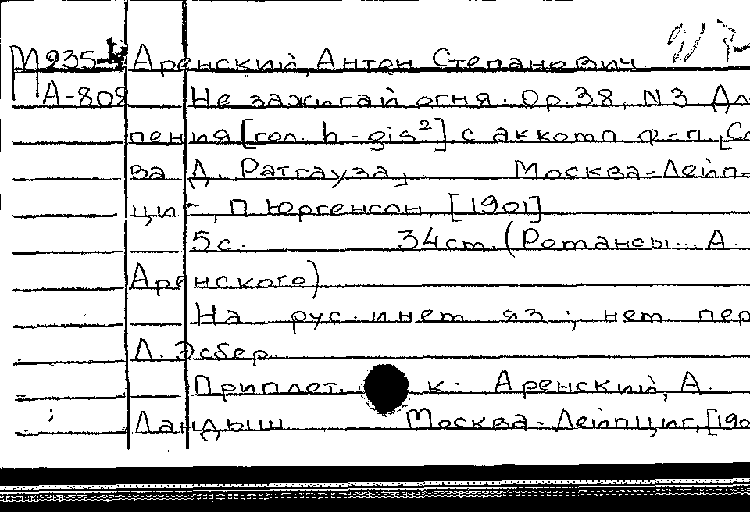 М935 Аренский, Антон Степанович
А-808 Не зажигай огня. Ор.38, N3 Дл
пения [гол. h-gis²] с аккомп ф-п. [Сл
ва Д. Ратгауза] Москва-Лейп-
циг, П. Юргенсон, [1901]
5с. 34см. (Романсы... А.
Аренского)
На рус. и нем яз; нем пер
Л. Эсбер
Приплет. к: Аренский, А.
Ландыш Москва-Лейпциг, [190